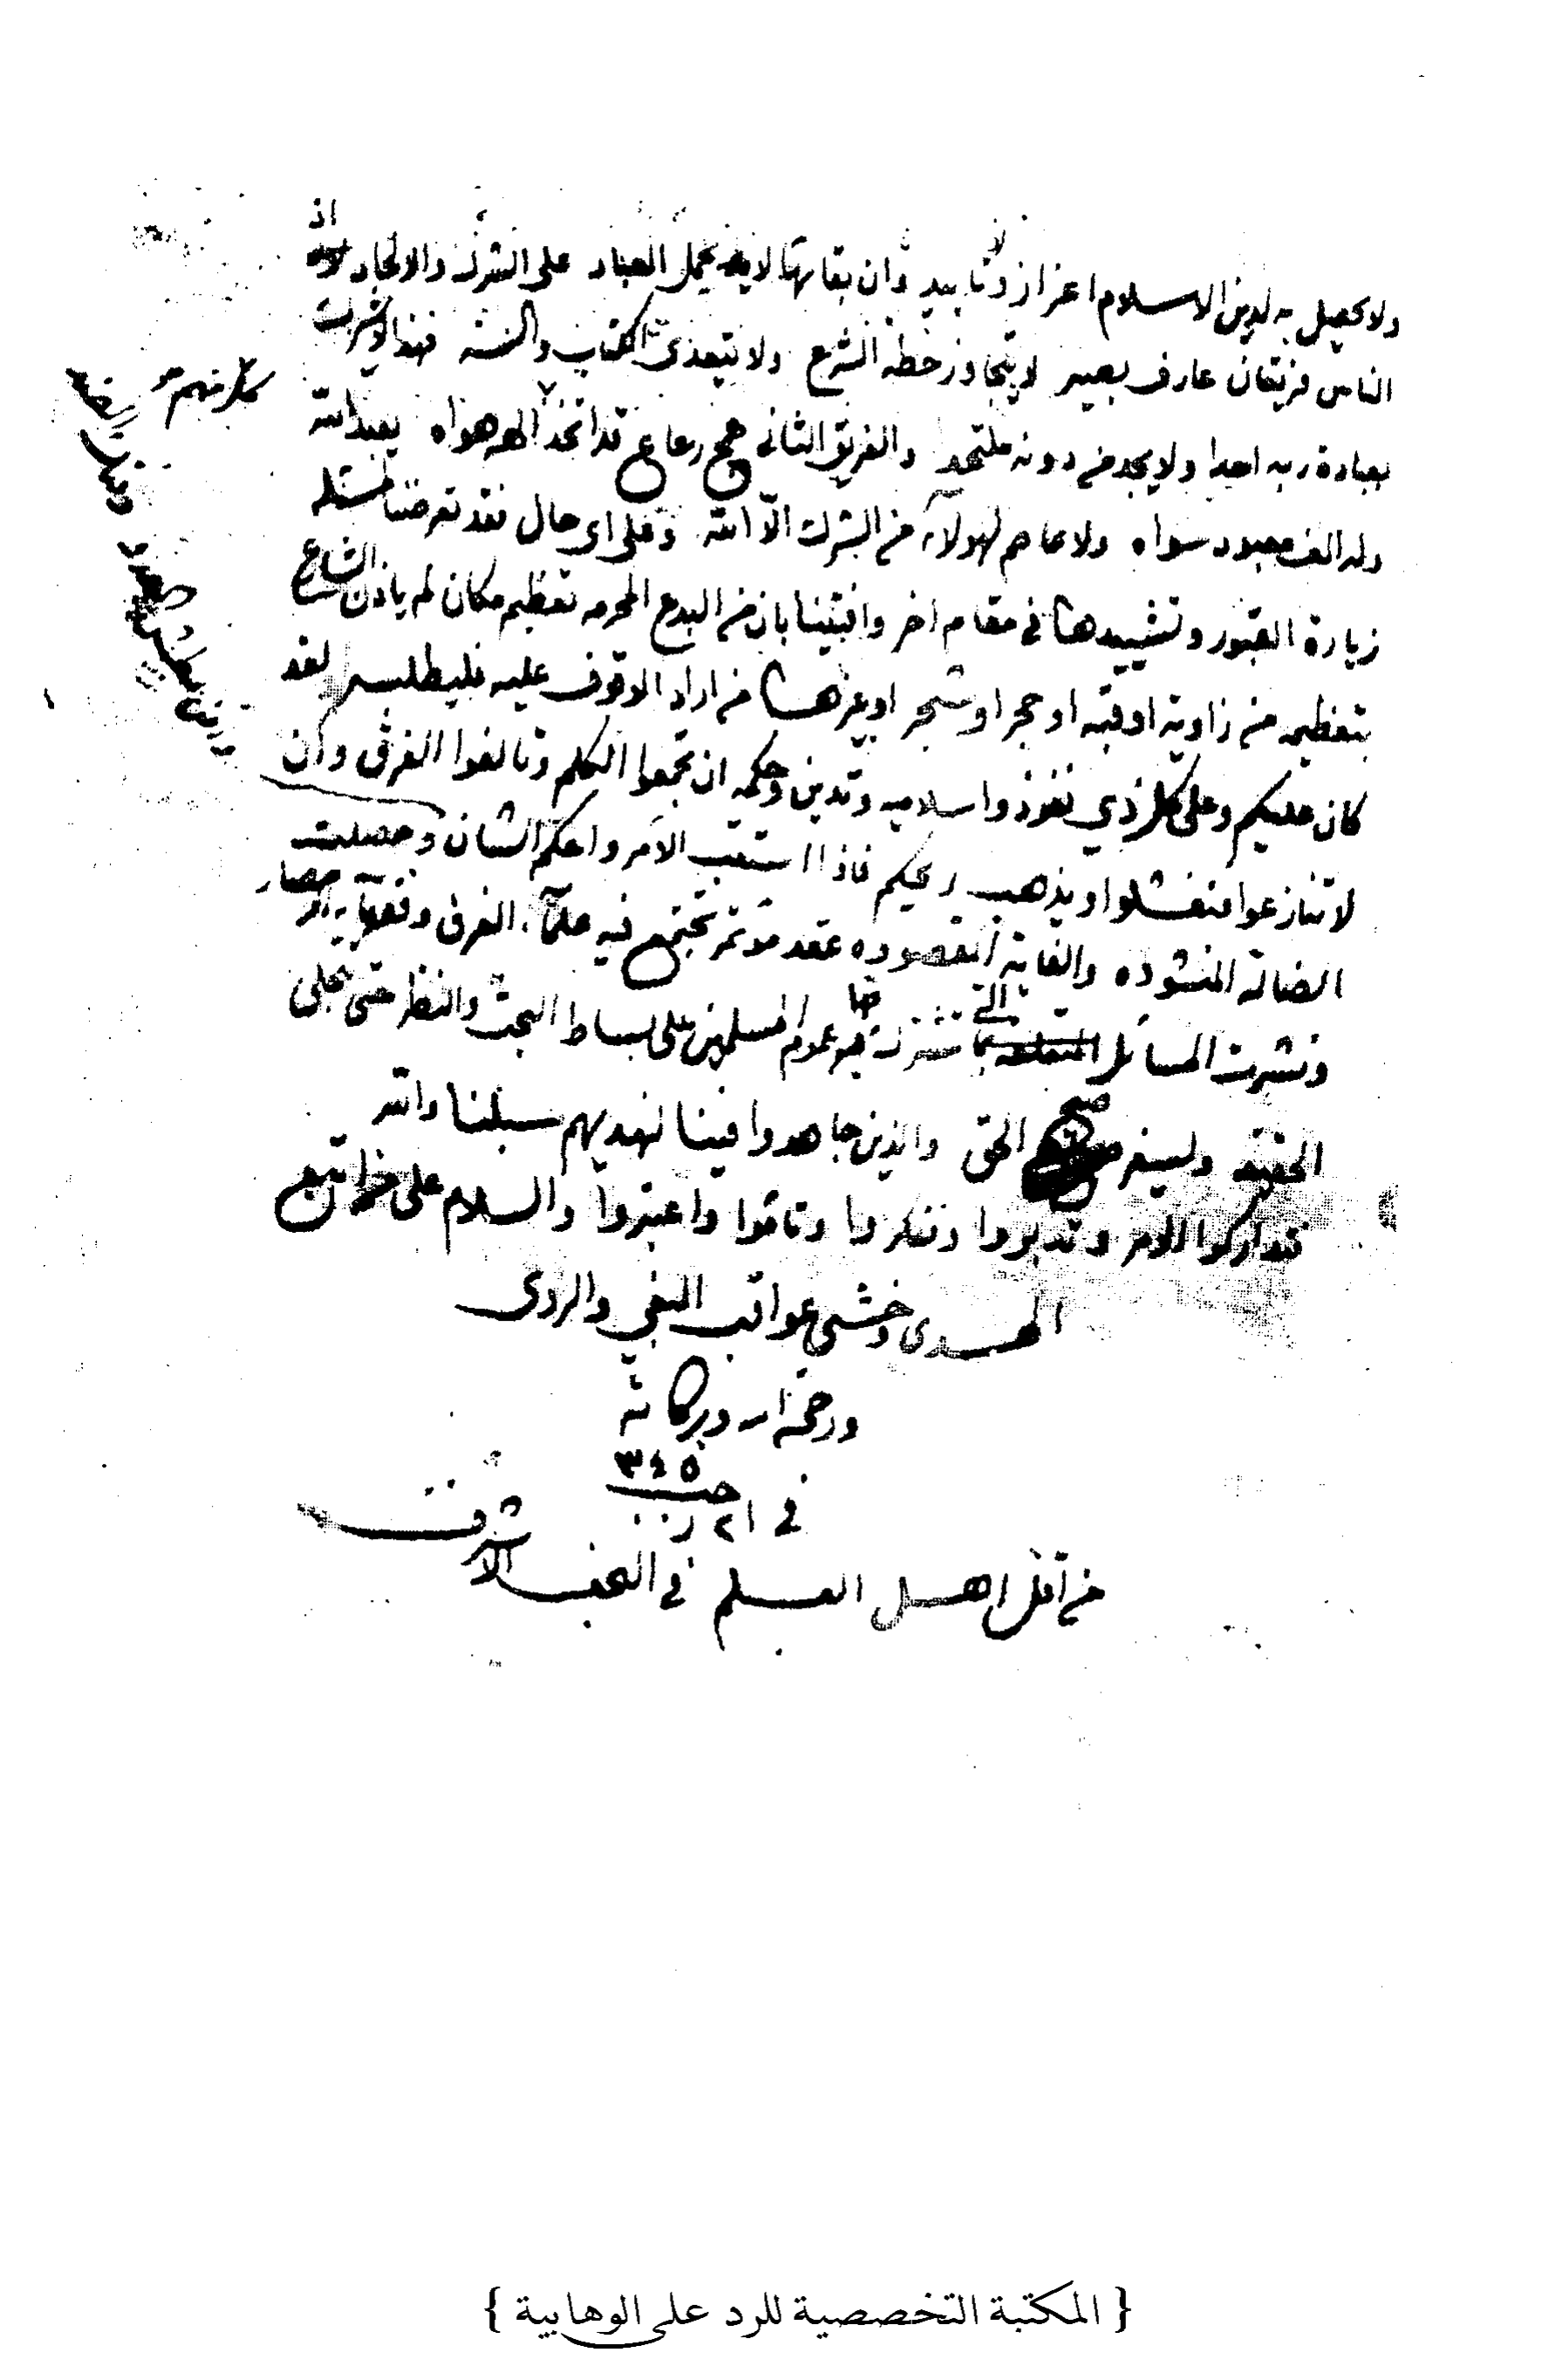 ولا يحصل به لدين الاسلام اعزاز ولا تاييد وان بقائها لا يحمل العباد على الشرك والالحاد اذ
الناس فريقان عارف بصير لا يتجاوز خطة الشرع ولا يتعدى الكتاب والسنة فهذا لا يشرك
بعبادة ربه احدا ولا يجد من دونه ملتحدا والفريق الثاني همج رعاع قد اتخذ الهه هواه يعبد الله
وله الف معبود سواه ولا عاصم لهولآء من الشرك الا الله وعلى اي حال فقد تعرضنا لمسئلة
زيارة القبور وتشييدها في مقام اخر وافتينا بان من البدع المحرمه تعظيم مكان لم ياذن الشارع
بتعظيمه من زاوية او قبه او حجر او شجر او غيرها من اراد الوقوف عليه فليطلبه لقد
كان عليكم وعلى كل ذي نفوذ واسلاميه وتدين وحكمه ان تجمعوا الكلم وتالفوا الفرق وان
لا تنازعوا فتفشلوا ويذهب ريحكم فاذا استتب الامر واحكم الشان وحصلت
الضالة المنشوده والغاية المقصوده عقد مؤتمر تجتمع فيه علمآء الفرق وفقهآء الامصار
ونشرت المسائل التي تشترك فيها عموم المسلمين على بساط البحث والنظر حتى تجلى
الحقيقه وليسفر صبح الحق والذين جاهدوا فينا لنهدينهم سبلنا والله
فتداركوا الامر وتدبروا وتفكروا وتاملوا واعتبروا والسلام على من اتبع
الهدى وخشى عواقب الغي والردى
ورحمة الله وبركاته
في ٢١ رجب ٣٤٥
من اقل اهل العلم في النجف الاشرف
{ المكتبة التخصصية للرد على الوهابية }